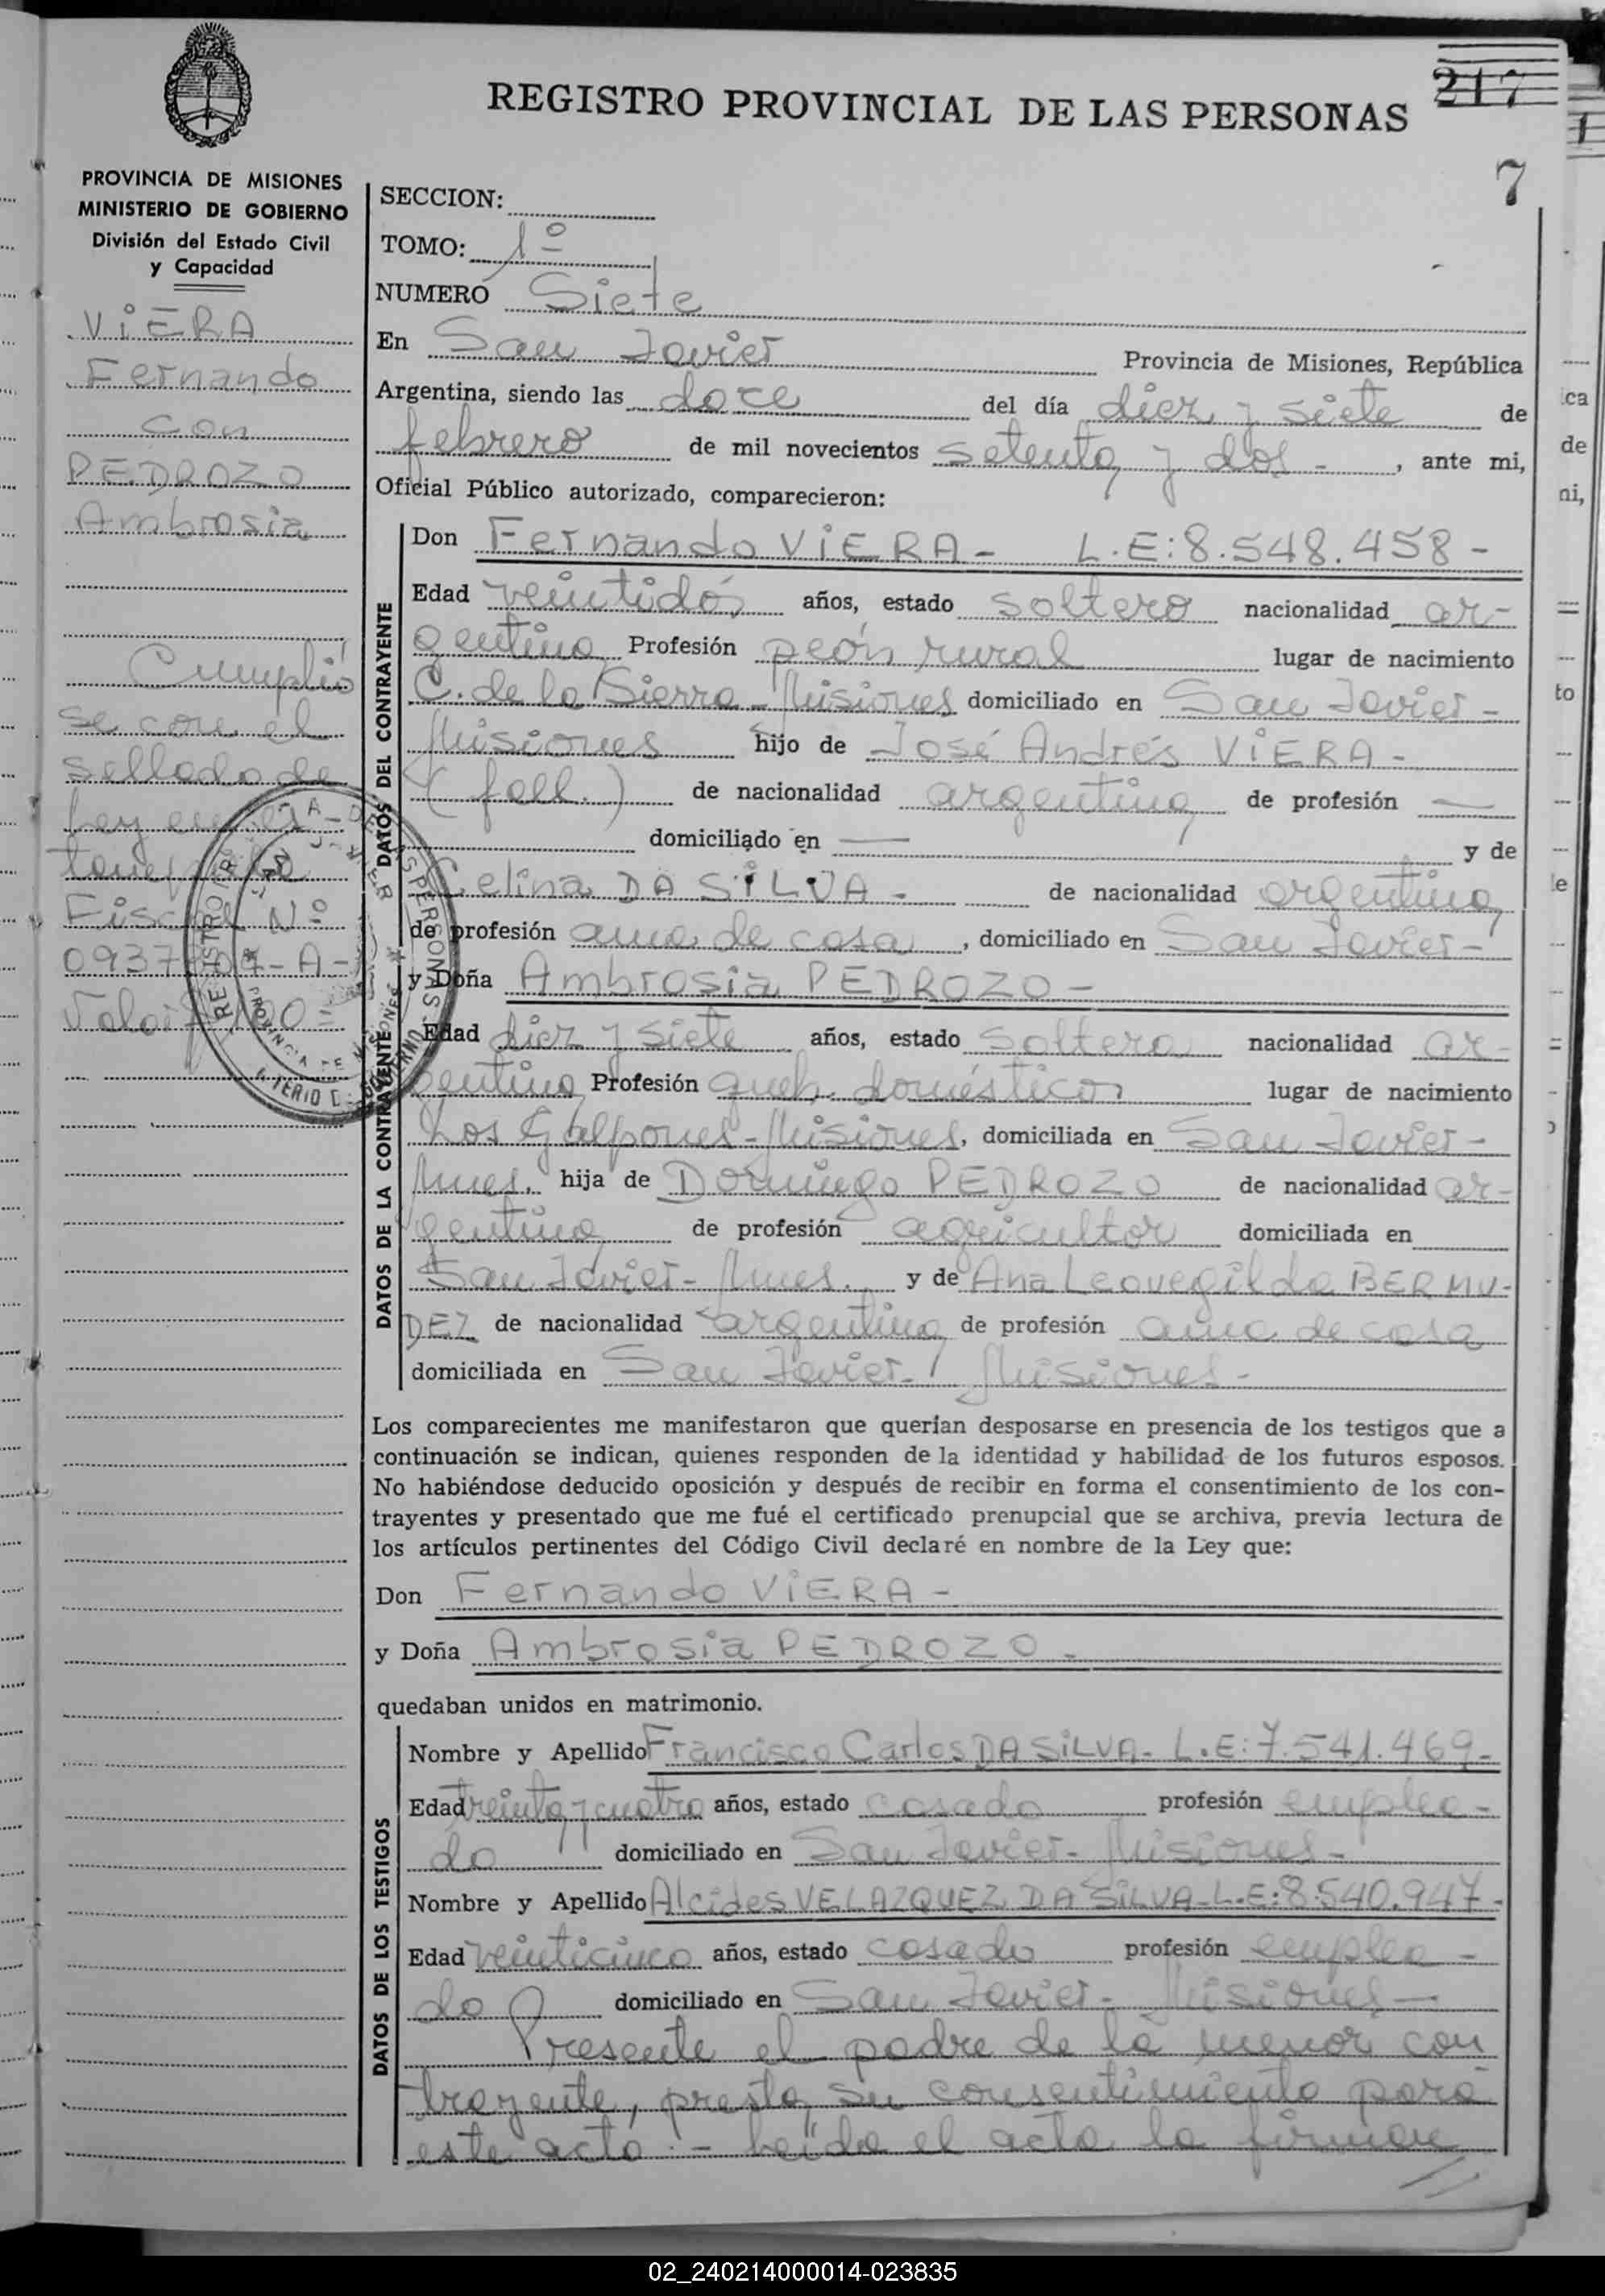 REGISTRO PROVINCIAL DE LAS PERSONAS
217
7
PROVINCIA DE MISIONES
MINISTERIO DE GOBIERNO
División del Estado Civil
y Capacidad
VIERA
Fernando
con
PEDROZO
Ambrosia
Cumplió
se con el
sellado de
Ley en es-
tampilla
Fiscal Nº
Valor
SECCION:
TOMO: 1º
NUMERO Siete
En San Javier Provincia de Misiones, República
Argentina, siendo las doce del día diez y siete de
febrero de mil novecientos setenta y dos - , ante mi,
Oficial Público autorizado, comparecieron:
DATOS DEL CONTRAYENTE
Don Fernando VIERA - L.E: 8.548.458 -
Edad veintidós años, estado soltero nacionalidad ar-
gentina Profesión peón rural lugar de nacimiento
C. de la Sierra - Misiones domiciliado en San Javier -
Misiones hijo de José Andrés VIERA -
(fall.) de nacionalidad argentina de profesión —
domiciliado en — y de
Celina DA SILVA - de nacionalidad argentina
de profesión ama de casa, domiciliado en San Javier -
y Doña Ambrosia PEDROZO -
DATOS DE LA CONTRAYENTE
Edad diez y siete años, estado soltera nacionalidad ar-
gentina Profesión queh. domésticos lugar de nacimiento
Los Galpones - Misiones, domiciliada en San Javier -
Mnes. hija de Domingo PEDROZO de nacionalidad ar-
gentina de profesión agricultor domiciliada en
San Javier - Mnes. y de Ana Leovegilda BERMU-
DEZ de nacionalidad argentina de profesión ama de casa
domiciliada en San Javier - Misiones -
Los comparecientes me manifestaron que querían desposarse en presencia de los testigos que a
continuación se indican, quienes responden de la identidad y habilidad de los futuros esposos.
No habiéndose deducido oposición y después de recibir en forma el consentimiento de los con-
trayentes y presentado que me fué el certificado prenupcial que se archiva, previa lectura de
los artículos pertinentes del Código Civil declaré en nombre de la Ley que:
Don Fernando VIERA -
y Doña Ambrosia PEDROZO -
quedaban unidos en matrimonio.
DATOS DE LOS TESTIGOS
Nombre y Apellido Francisco Carlos DA SILVA - L.E: 7.541.469 -
Edad treinta y cuatro años, estado casado profesión emplea-
do domiciliado en San Javier - Misiones -
Nombre y Apellido Alcides VELAZQUEZ DA SILVA - L.E: 8.540.947 -
Edad veinticinco años, estado casado profesión emplea-
do domiciliado en San Javier - Misiones -
Presente el padre de la menor con
trayente, presta su consentimiento para
este acto. - Leída el acta la firman
02_240214000014-023835